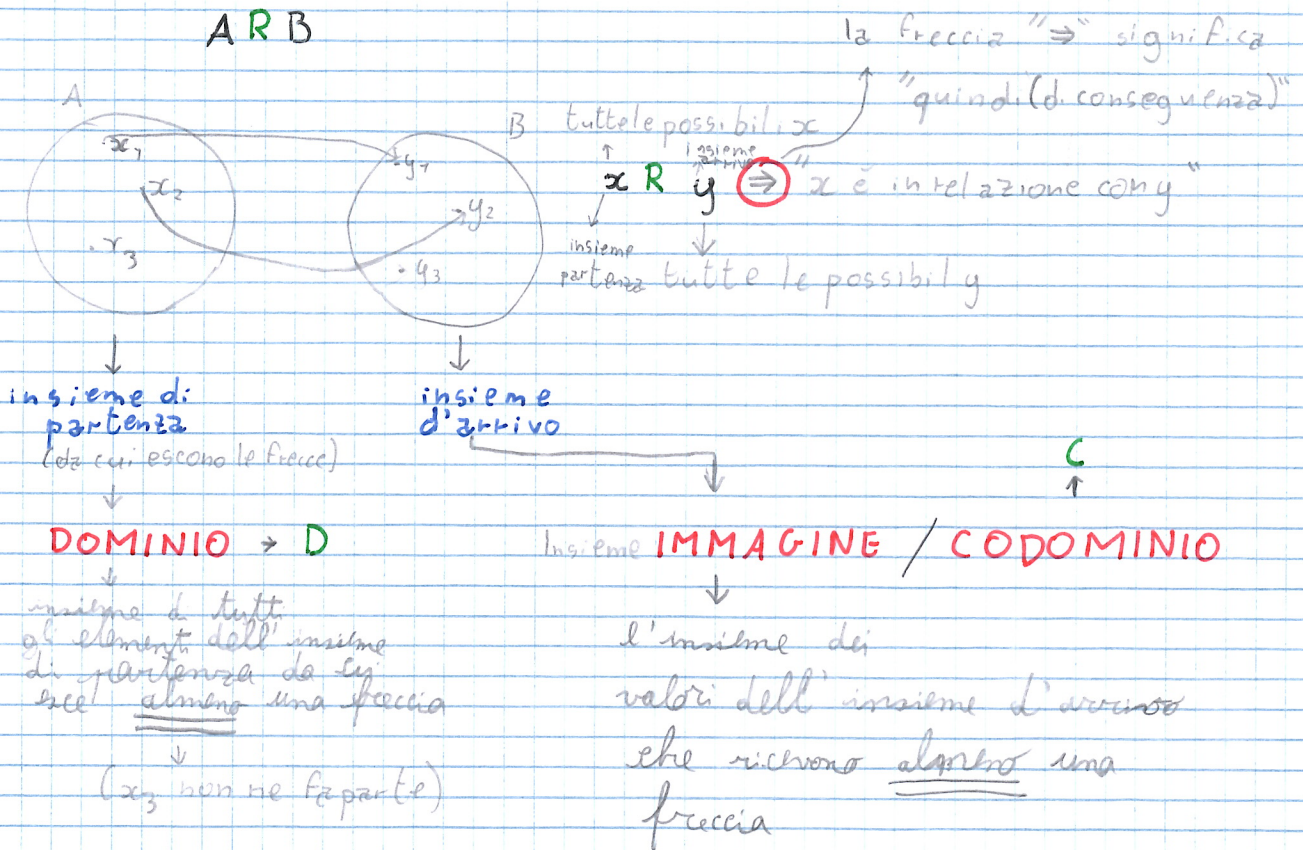 A R B
la freccia "⇒" significa
"quindi (di conseguenza)"
A
B
x1
x2
x3
y1
y2
y3
tutte le possibili x
insieme
arrivo
x R y ⇒ "x è in relazione con y"
insieme
partenza
tutte le possibil y
insieme di
partenza
(da cui escono le frecce)
insieme
d'arrivo
C
DOMINIO → D
Insieme IMMAGINE / CODOMINIO
insieme di tutti
gli elementi dell'insieme
di partenza da cui
esce almeno una freccia
(x3 non ne fa parte)
l'insieme dei
valori dell'insieme d'arrivo
che ricevono almeno una
freccia